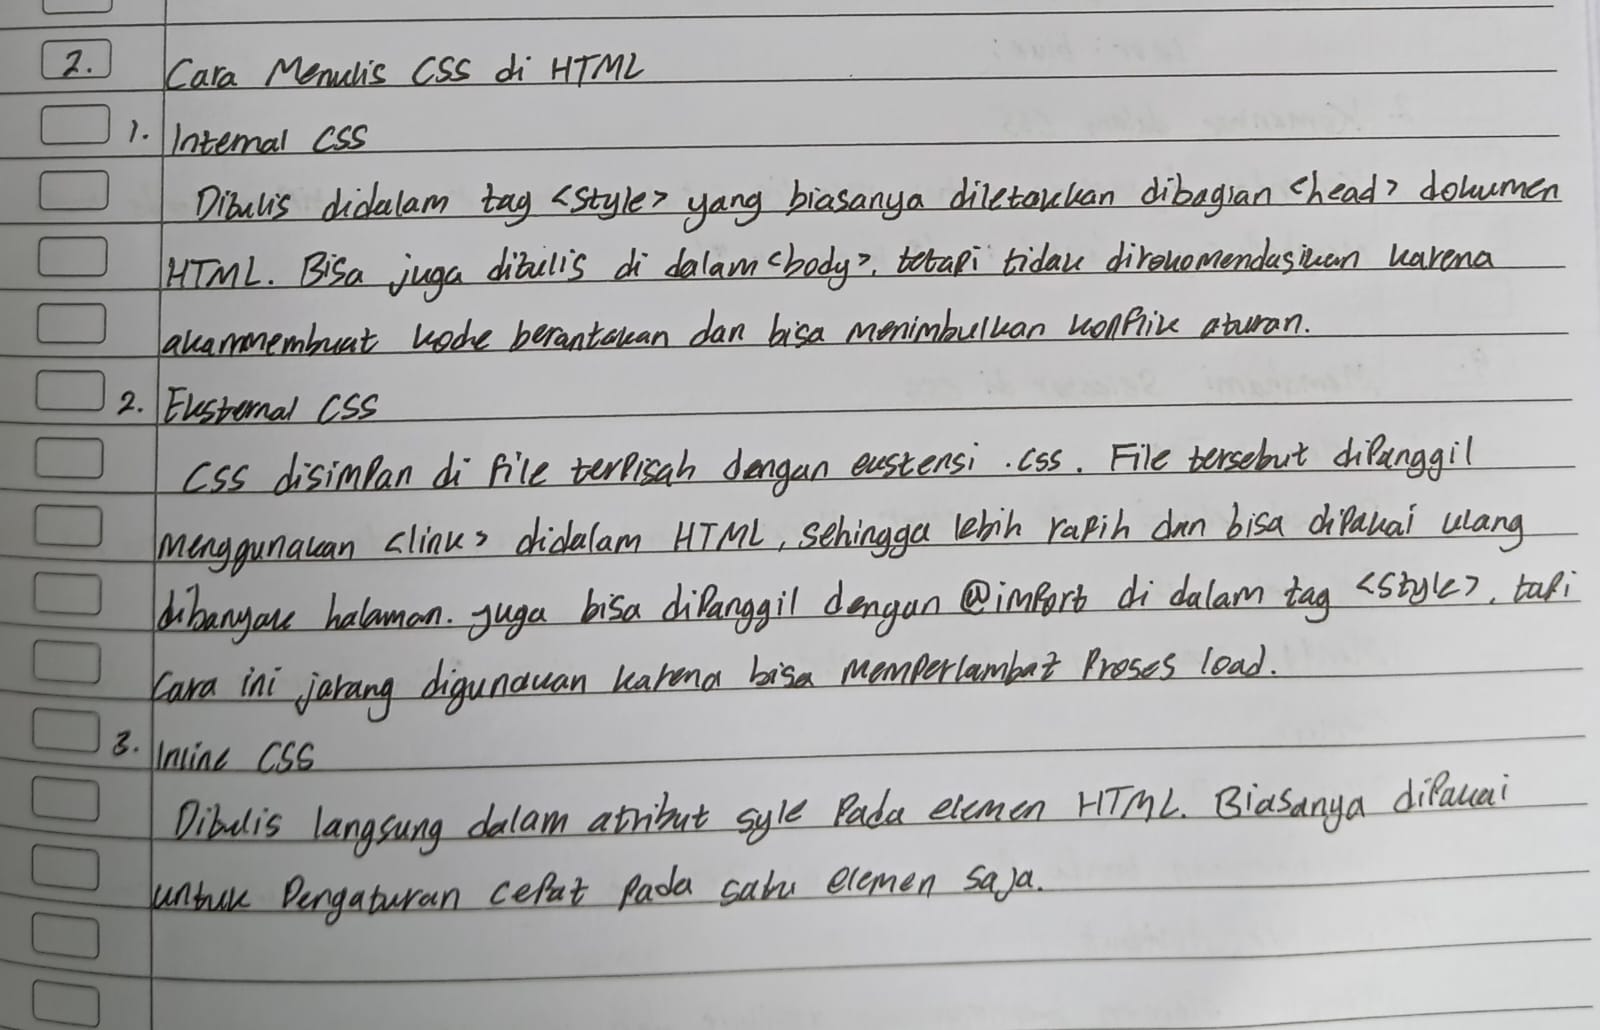 2. Cara Menulis CSS di HTML
1. Internal CSS
Ditulis didalam tag <style> yang biasanya diletakkan dibagian <head> dokumen
HTML. Bisa juga ditulis di dalam <body>, tetapi tidak direkomendasikan karena
akan membuat kode berantakan dan bisa menimbulkan konflik aturan.
2. Eksternal CSS
CSS disimpan di file terpisah dengan ekstensi .css. File tersebut dipanggil
menggunakan <link> didalam HTML, sehingga lebih rapih dan bisa dipakai ulang
dibanyak halaman. Juga bisa dipanggil dengan @import di dalam tag <style>, tapi
Cara ini jarang digunakan karena bisa memperlambat proses load.
3. Inline CSS
Ditulis langsung dalam atribut syle pada elemen HTML. Biasanya dipakai
untuk pengaturan cepat pada satu elemen saja.